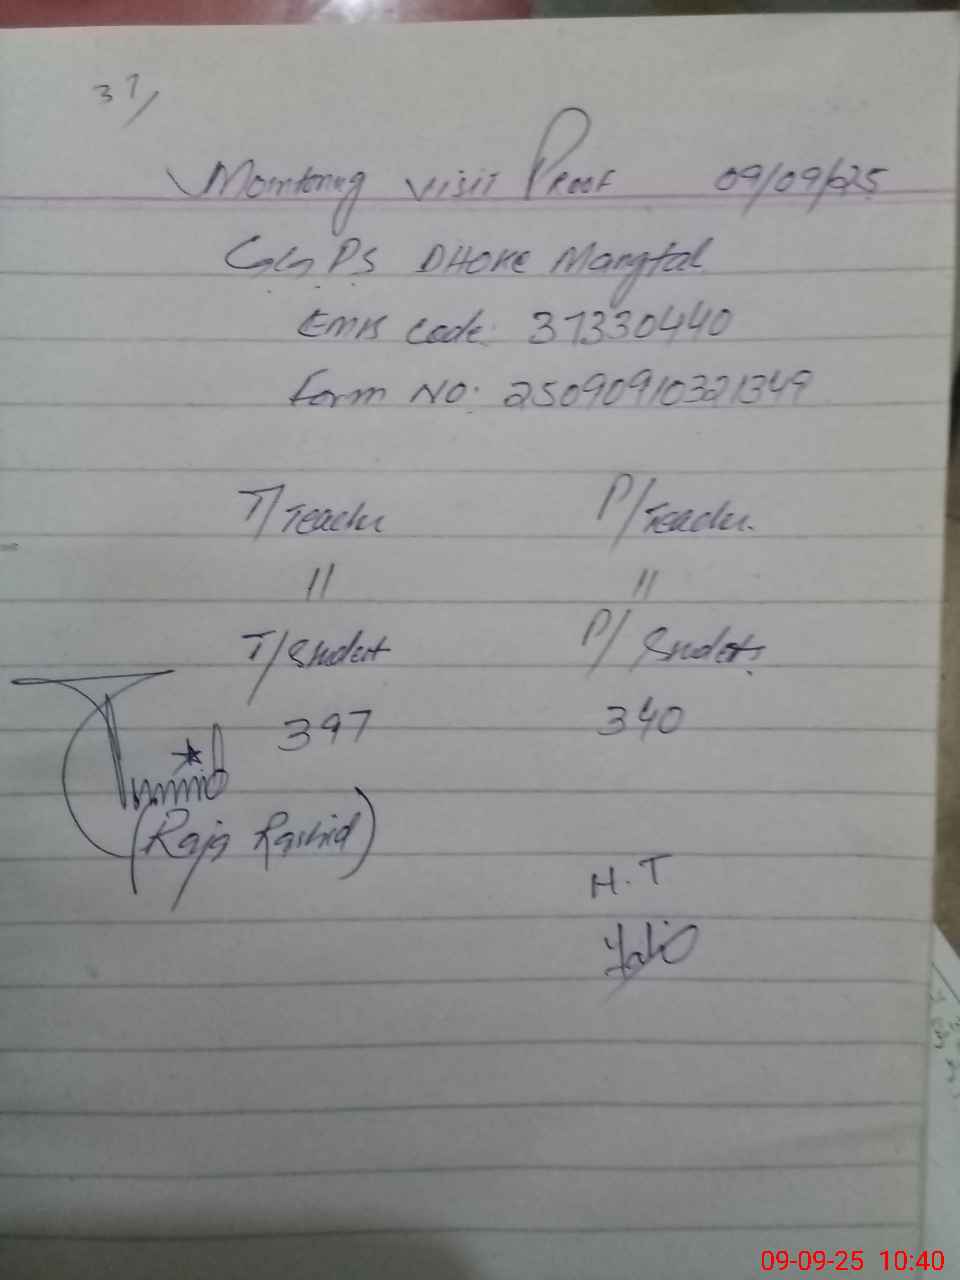 37/
Monitoring visit Proof 09/09/025
G.G.PS DHOKE Mangtal
Emis code: 37330440
Form NO: 25090910321349
T/Teacher P/Teacher.
11 11
T/Student P/Students.
397 340
(Raja Rashid)
H.T
09-09-25 10:40